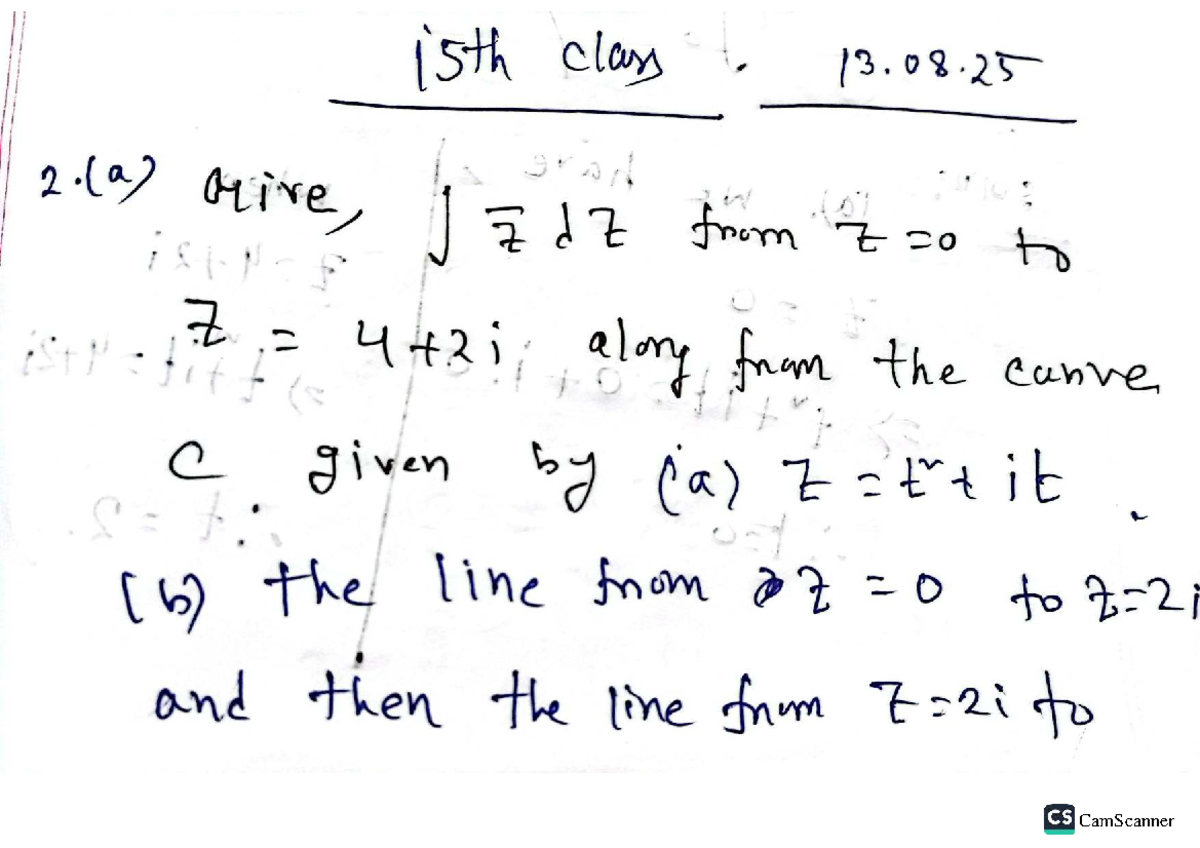 15th class. 13.08.25
2.(a) Give, ∫ z̄ dz from z = 0 to
z = 4+2i along from the curve
C given by (a) z = t² + it.
(b) the line from z = 0 to z=2i
and then the line from z=2i to
CS CamScanner